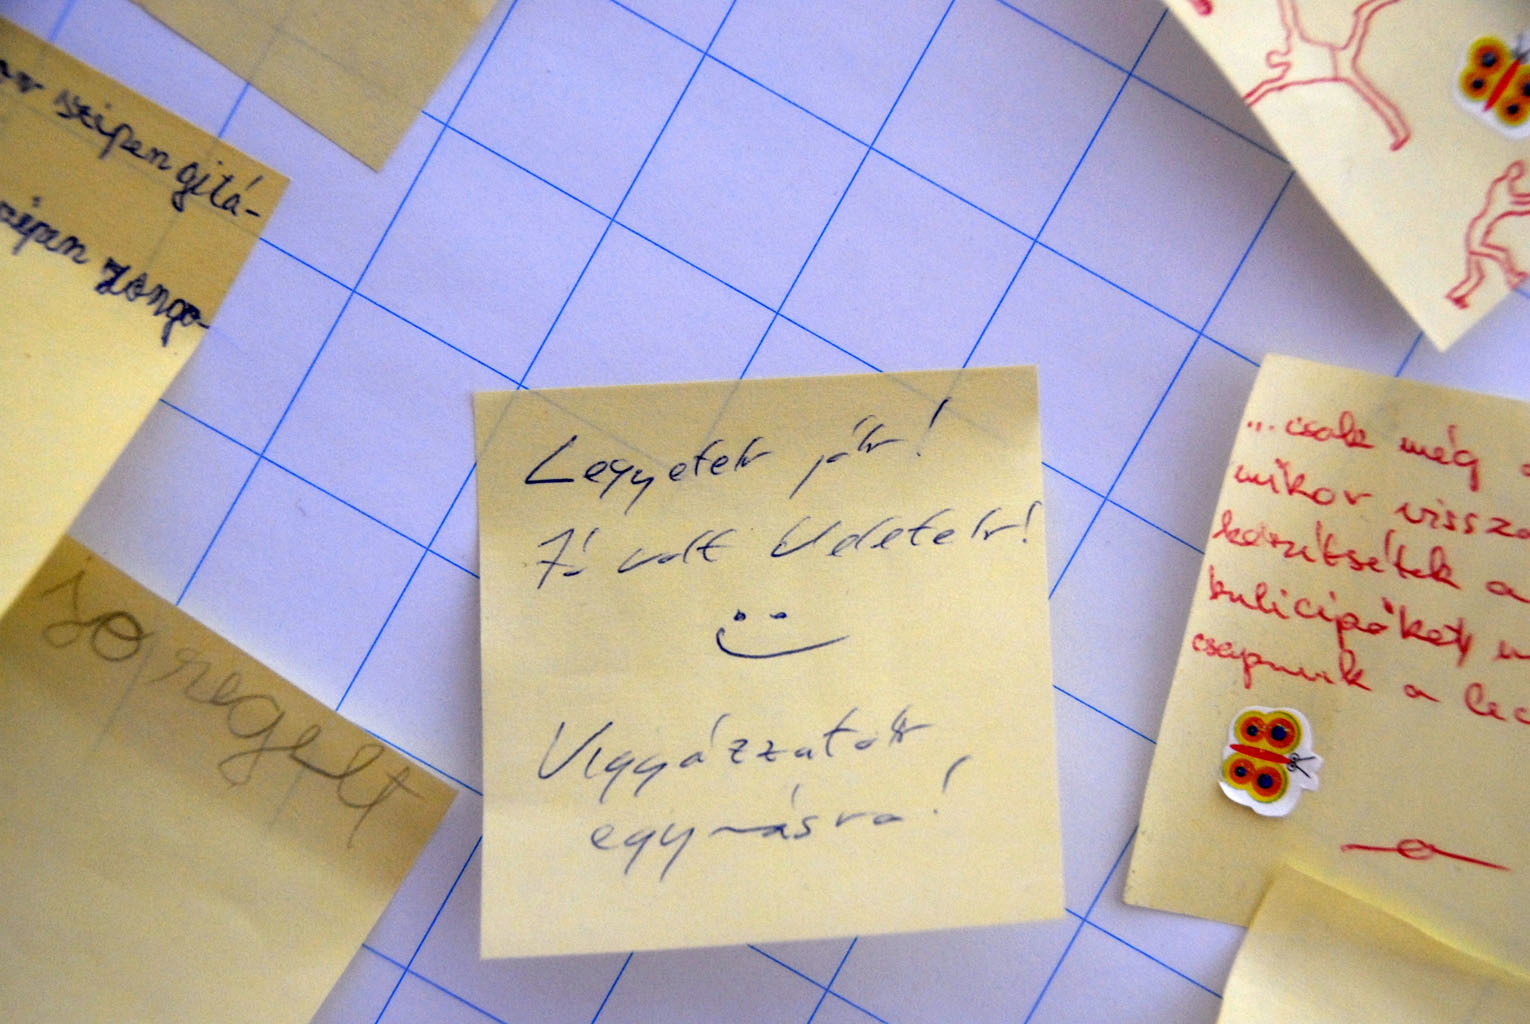 szépen gitá-
szépen zongo-
so regelt
Legyetek jók!
Jó volt Veletek!
Vigyázzatok
egymásra!
...csak még a
mikor vissza
készítsétek a
bulicipőket m
csapunk a lec